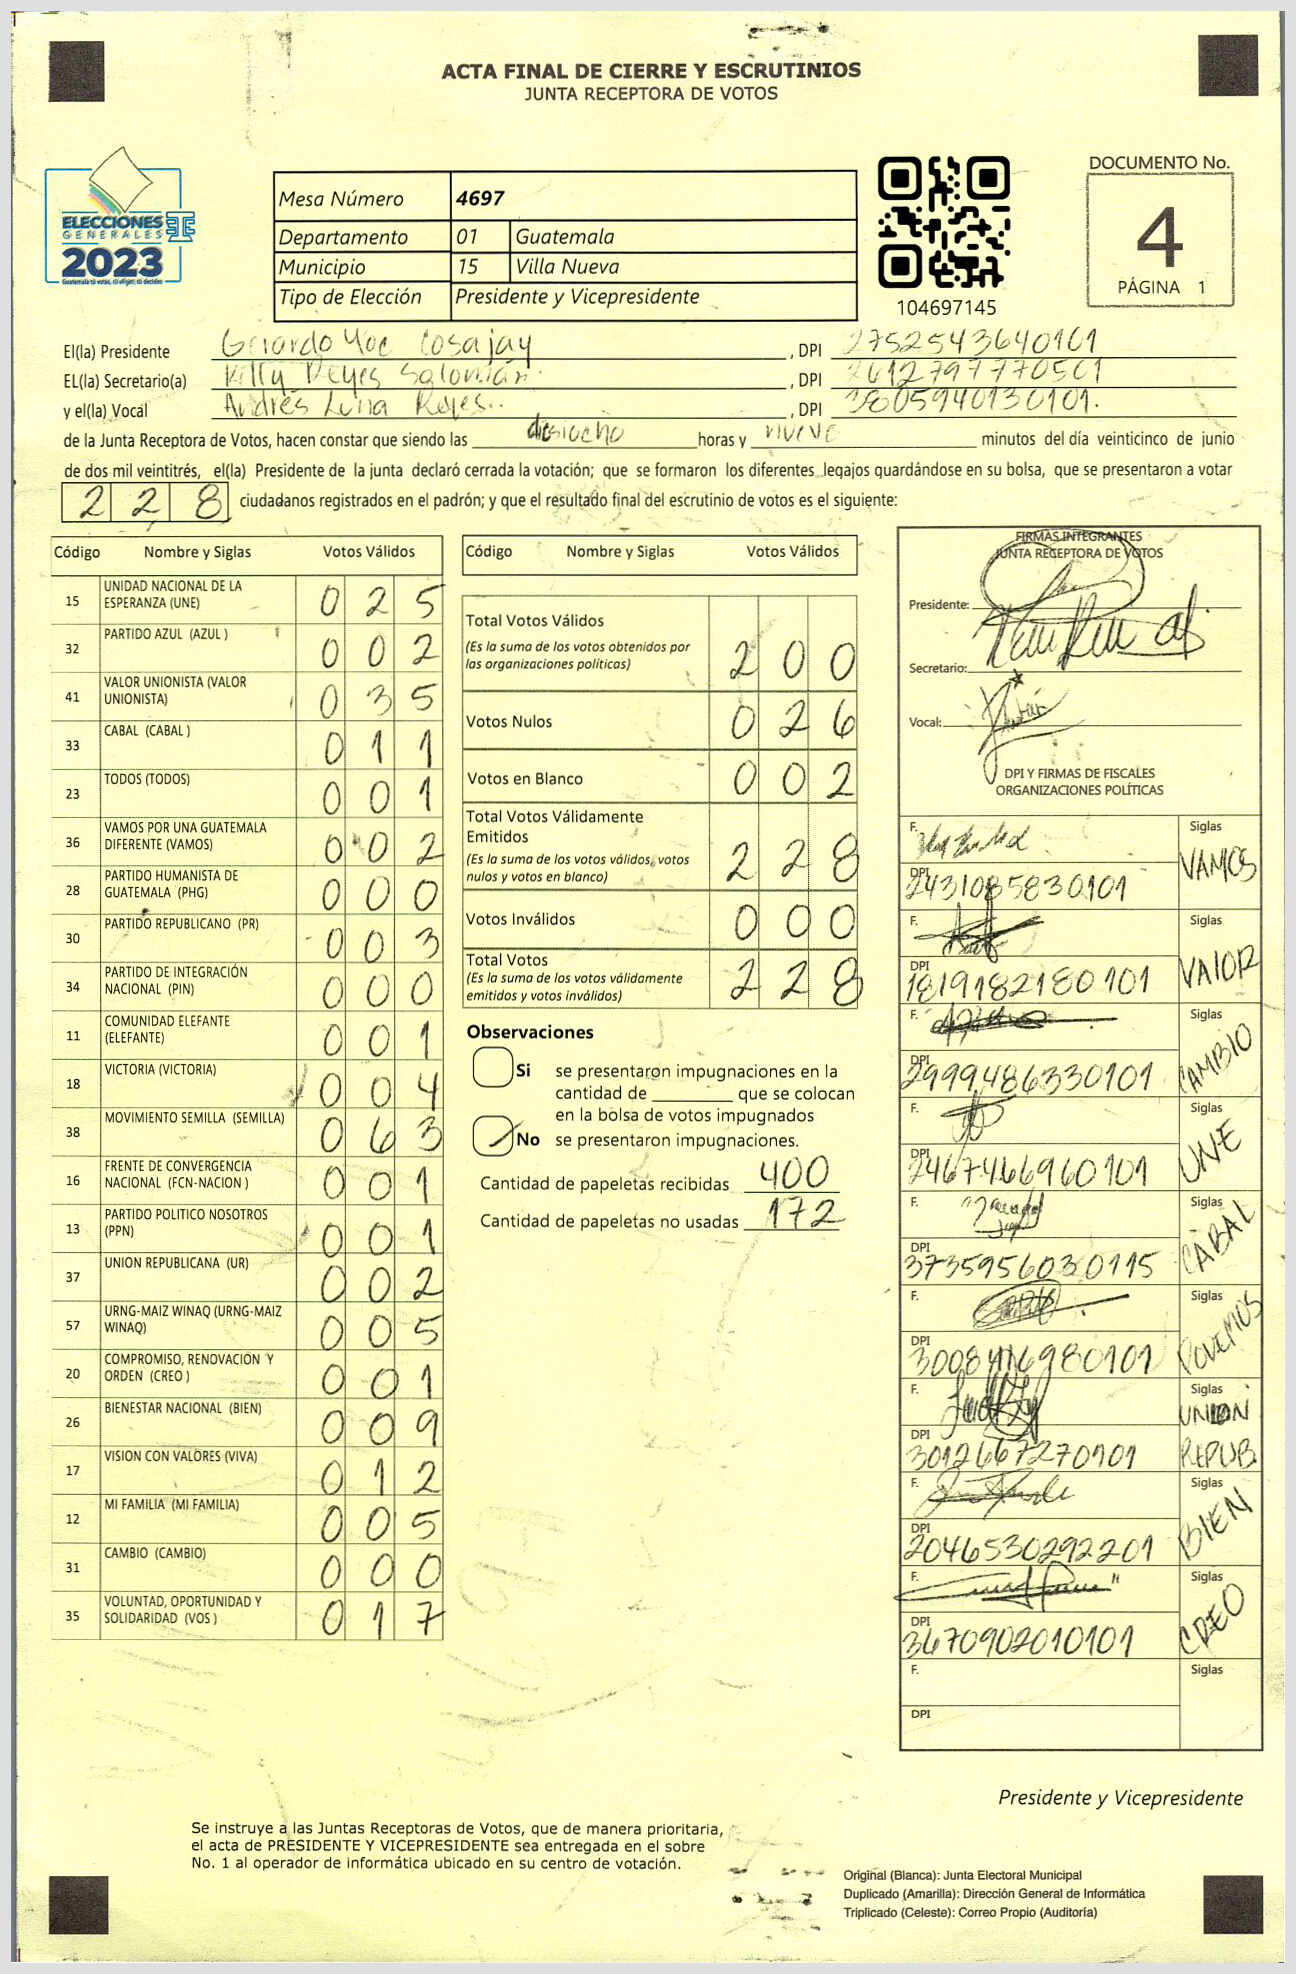 ACTA FINAL DE CIERRE Y ESCRUTINIOS
JUNTA RECEPTORA DE VOTOS
ELECCIONES
GENERALES
2023
Mesa Número 4697
Departamento 01 Guatemala
Municipio 15 Villa Nueva
Tipo de Elección Presidente y Vicepresidente
104697145
DOCUMENTO No.
4
PÁGINA 1
El(la) Presidente Gerardo Yoc Cosajay, DPI 2752543640101
EL(la) Secretario(a) Reyes Salomán, DPI 2612797770501
y el(la) Vocal Andrés Luna Reyes, DPI 3805940130101.
de la Junta Receptora de Votos, hacen constar que siendo las dieciocho horas y nueve minutos del día veinticinco de junio
de dos mil veintitrés, el(la) Presidente de la junta declaró cerrada la votación; que se formaron los diferentes legajos guardándose en su bolsa, que se presentaron a votar
228 ciudadanos registrados en el padrón; y que el resultado final del escrutinio de votos es el siguiente:
Código Nombre y Siglas Votos Válidos
15 UNIDAD NACIONAL DE LA ESPERANZA (UNE) 025
32 PARTIDO AZUL (AZUL ) 002
41 VALOR UNIONISTA (VALOR UNIONISTA) 035
33 CABAL (CABAL ) 011
23 TODOS (TODOS) 001
36 VAMOS POR UNA GUATEMALA DIFERENTE (VAMOS) 002
28 PARTIDO HUMANISTA DE GUATEMALA (PHG) 000
30 PARTIDO REPUBLICANO (PR) 003
34 PARTIDO DE INTEGRACIÓN NACIONAL (PIN) 000
11 COMUNIDAD ELEFANTE (ELEFANTE) 001
18 VICTORIA (VICTORIA) 004
38 MOVIMIENTO SEMILLA (SEMILLA) 063
16 FRENTE DE CONVERGENCIA NACIONAL (FCN-NACION ) 001
13 PARTIDO POLITICO NOSOTROS (PPN) 001
37 UNION REPUBLICANA (UR) 002
57 URNG-MAIZ WINAQ (URNG-MAIZ WINAQ) 005
20 COMPROMISO, RENOVACIÓN Y ORDEN (CREO ) 001
26 BIENESTAR NACIONAL (BIEN) 009
17 VISION CON VALORES (VIVA) 012
12 MI FAMILIA (MI FAMILIA) 005
31 CAMBIO (CAMBIO) 000
35 VOLUNTAD, OPORTUNIDAD Y SOLIDARIDAD (VOS ) 017
Código Nombre y Siglas Votos Válidos
Total Votos Válidos 200
(Es la suma de los votos obtenidos por las organizaciones políticas)
Votos Nulos 026
Votos en Blanco 002
Total Votos Válidamente Emitidos 228
(Es la suma de los votos válidos, votos nulos y votos en blanco)
Votos Inválidos 000
Total Votos 228
(Es la suma de los votos válidamente emitidos y votos inválidos)
Observaciones
Si se presentaron impugnaciones en la
cantidad de ________ que se colocan
en la bolsa de votos impugnados
No se presentaron impugnaciones.
Cantidad de papeletas recibidas 400
Cantidad de papeletas no usadas 172
FIRMAS INTEGRANTES
JUNTA RECEPTORA DE VOTOS
Presidente:
Secretario:
Vocal:
DPI Y FIRMAS DE FISCALES
ORGANIZACIONES POLÍTICAS
F. Siglas VAMOS
DPI 2431085830101
F. Siglas VALOR
DPI 1819182180101
F. Siglas CAMBIO
DPI 2999486330101
F. Siglas UNE
DPI 2467466960101
F. Siglas CABAL
DPI 3735956030115
F. Siglas
DPI 3008416980101
F. Siglas UNION REPUB.
DPI 3012667270101
F. Siglas BIEN
DPI 2046530292201
F. Siglas CREO
DPI 3670902010101
F. Siglas
DPI
Presidente y Vicepresidente
Se instruye a las Juntas Receptoras de Votos, que de manera prioritaria,
el acta de PRESIDENTE Y VICEPRESIDENTE sea entregada en el sobre
No. 1 al operador de informática ubicado en su centro de votación.
Original (Blanca): Junta Electoral Municipal
Duplicado (Amarilla): Dirección General de Informática
Triplicado (Celeste): Correo Propio (Auditoría)